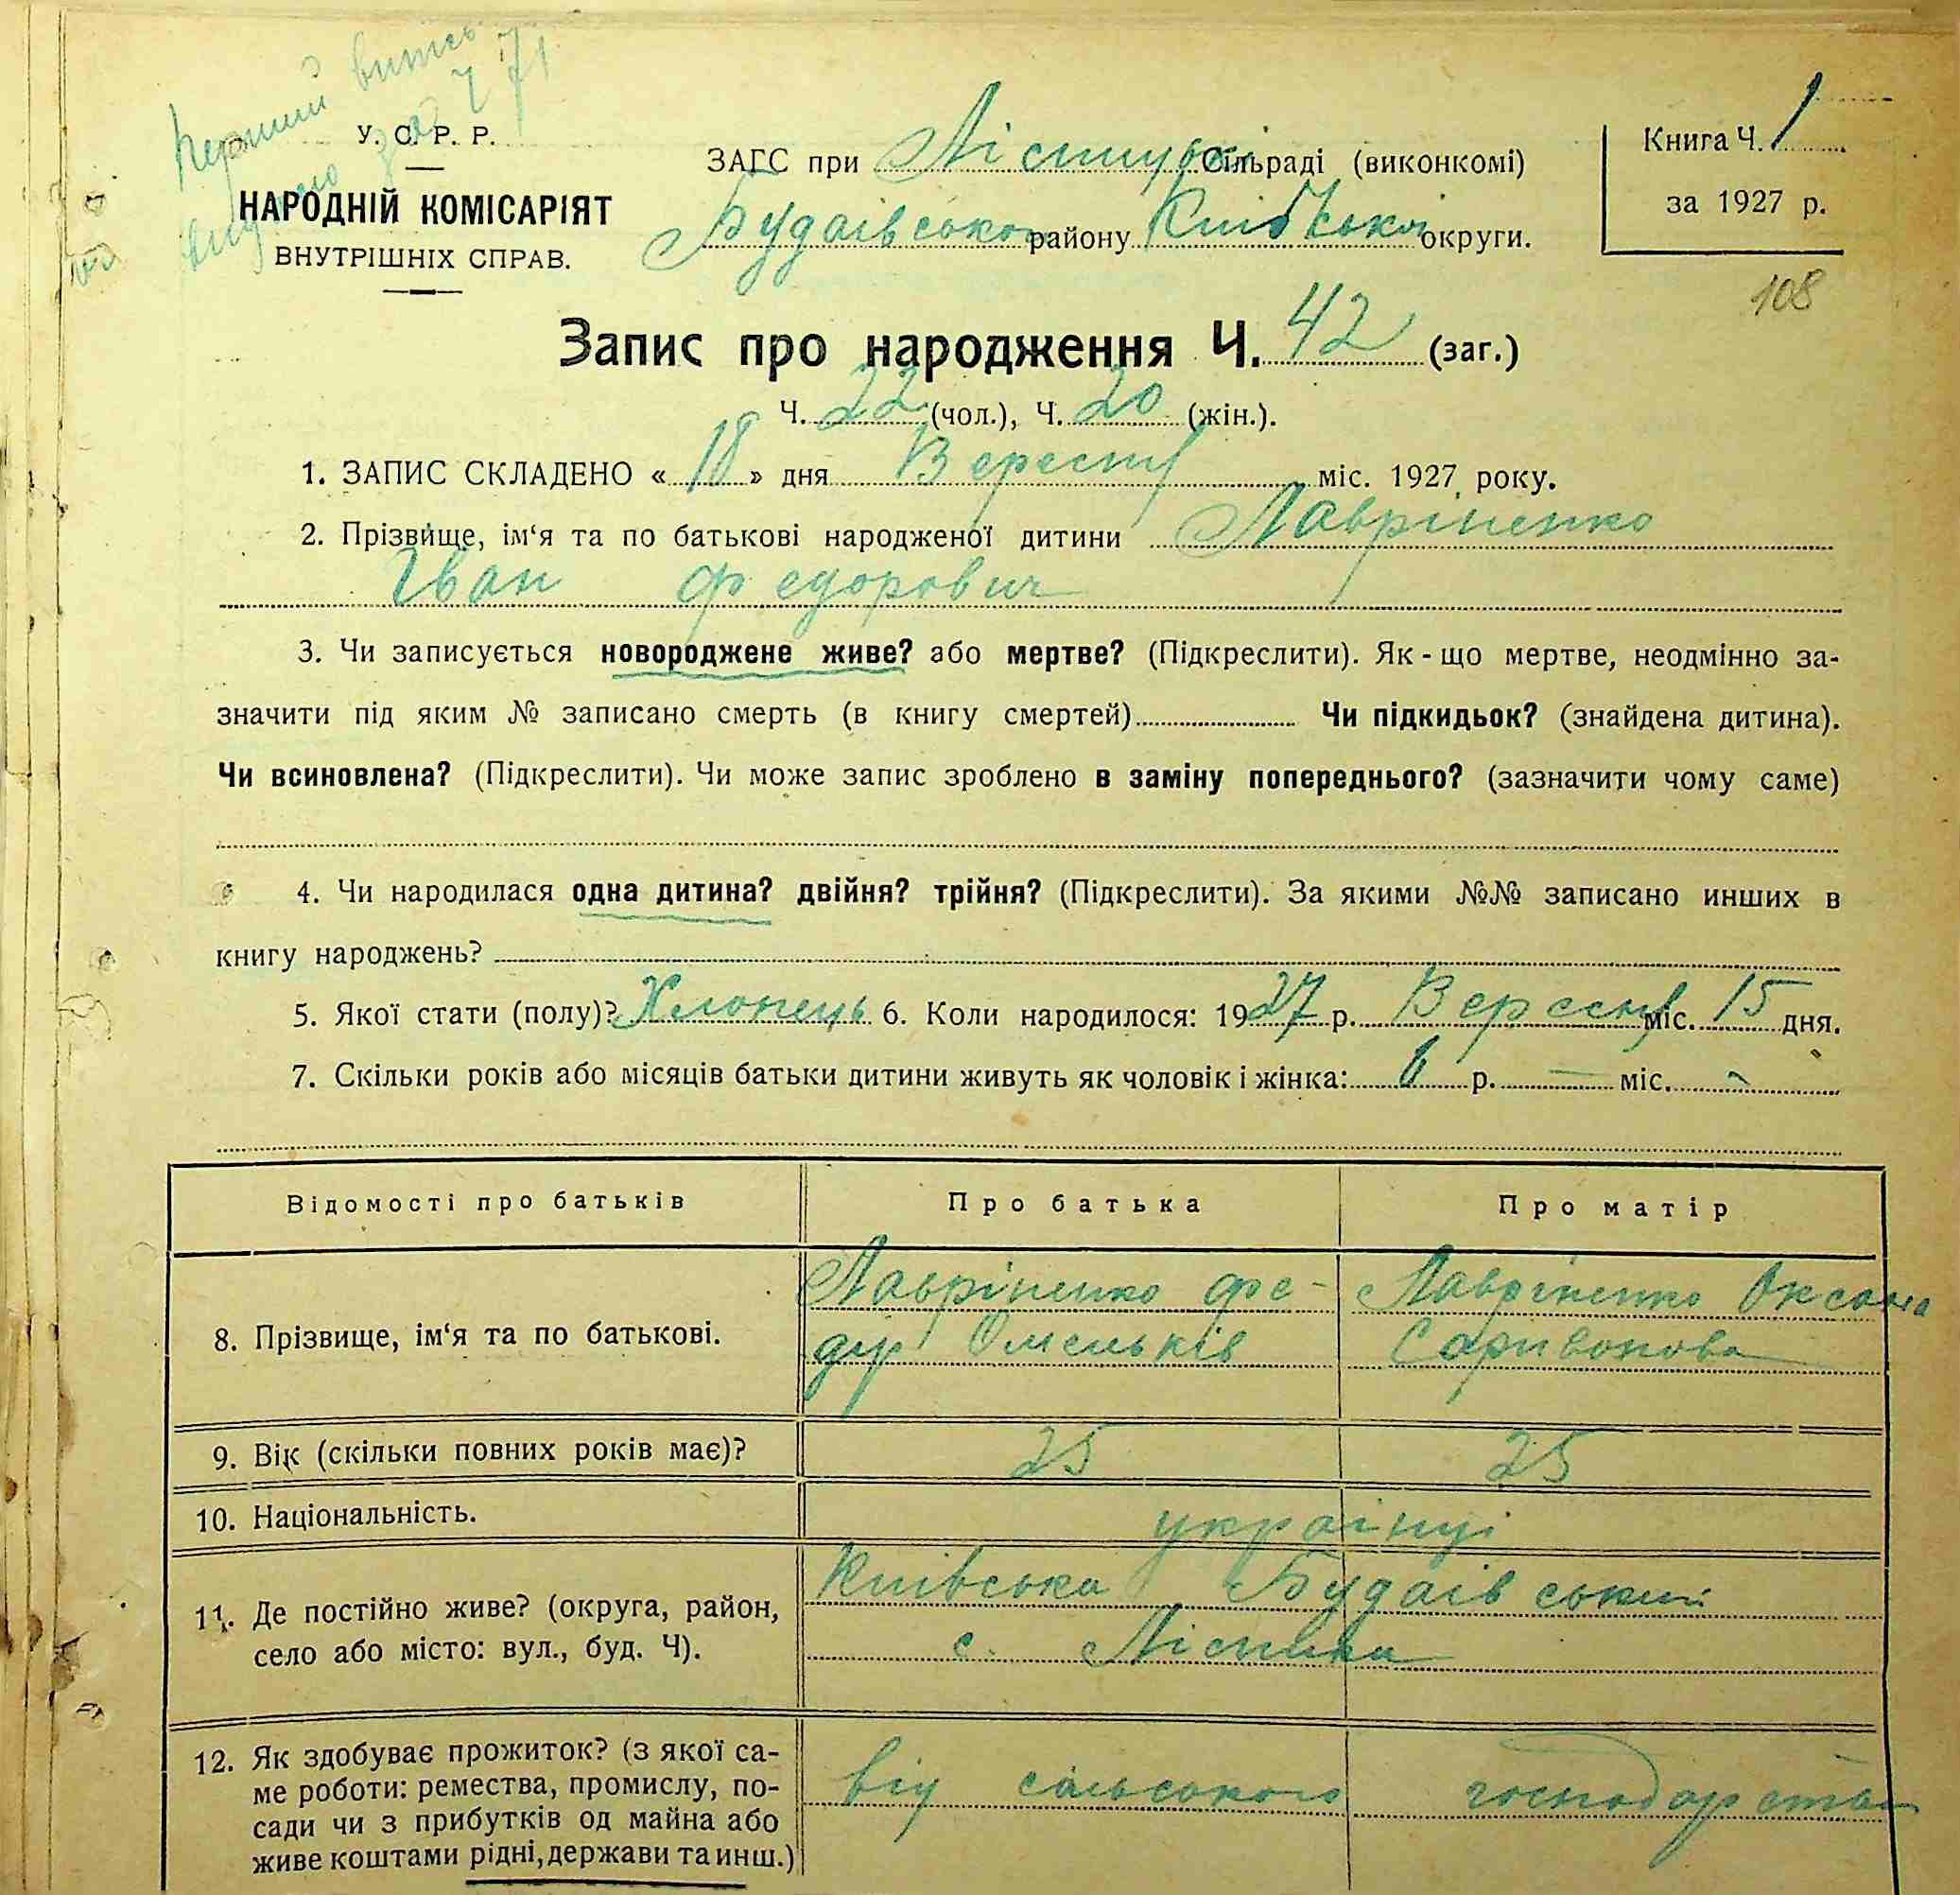 Перший витяг
видано за Ч 71
У. С. Р. Р.
НАРОДНІЙ КОМІСАРІЯТ
ВНУТРІШНІХ СПРАВ.
ЗАГС при Лісниц Сільраді (виконкомі)
Будаівсько району Київсько округи.
Книга Ч. 1
за 1927 р.
108
Запис про народження Ч. 42 (заг.)
Ч. 22 (чол.), Ч. 20 (жін.).
1. ЗАПИС СКЛАДЕНО « 18 » дня Вересня міс. 1927 року.
2. Прізвище, ім‘я та по батькові народженої дитини Лавріненко
Іван Федорович
3. Чи записується новороджене живе? або мертве? (Підкреслити). Як-що мертве, неодмінно за-
значити під яким № записано смерть (в книгу смертей) Чи підкидьок? (знайдена дитина).
Чи всиновлена? (Підкреслити). Чи може запис зроблено в заміну попереднього? (зазначити чому саме)
4. Чи народилася одна дитина? двійня? трійня? (Підкреслити). За якими №№ записано инших в
книгу народжень?
5. Якої стати (полу)? Хлопець 6. Коли народилося: 1927 р. Вересня міс. 15 дня.
7. Скільки років або місяців батьки дитини живуть як чоловік і жінка: 6 р. — міс. -
Відомості про батьків Про батька Про матір
8. Прізвище, ім‘я та по батькові. Лавріненко Фе- Лавріненко Оксана
дір Омельків Саривонова
9. Вік (скільки повних років має)? 25 25
10. Національність. українці
11. Де постійно живе? (округа, район, Київська Будаівський
село або місто: вул., буд. Ч). с. Лісники
12. Як здобуває прожиток? (з якої са-
ме роботи: ремества, промислу, по- від сільського господарства
сади чи з прибутків од майна або
живе коштами рідні, держави та инш.)